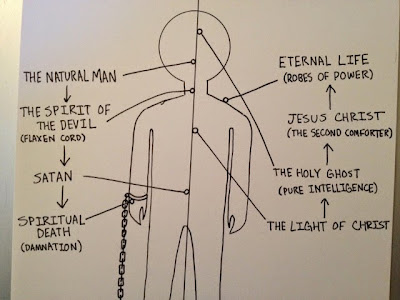 THE NATURAL MAN
THE SPIRIT OF
THE DEVIL
(FLAXEN CORD)
SATAN
SPIRITUAL
DEATH
(DAMNATION)
ETERNAL LIFE
(ROBES OF POWER)
JESUS CHRIST
(THE SECOND COMFORTER)
THE HOLY GHOST
(PURE INTELLIGENCE)
THE LIGHT OF CHRIST